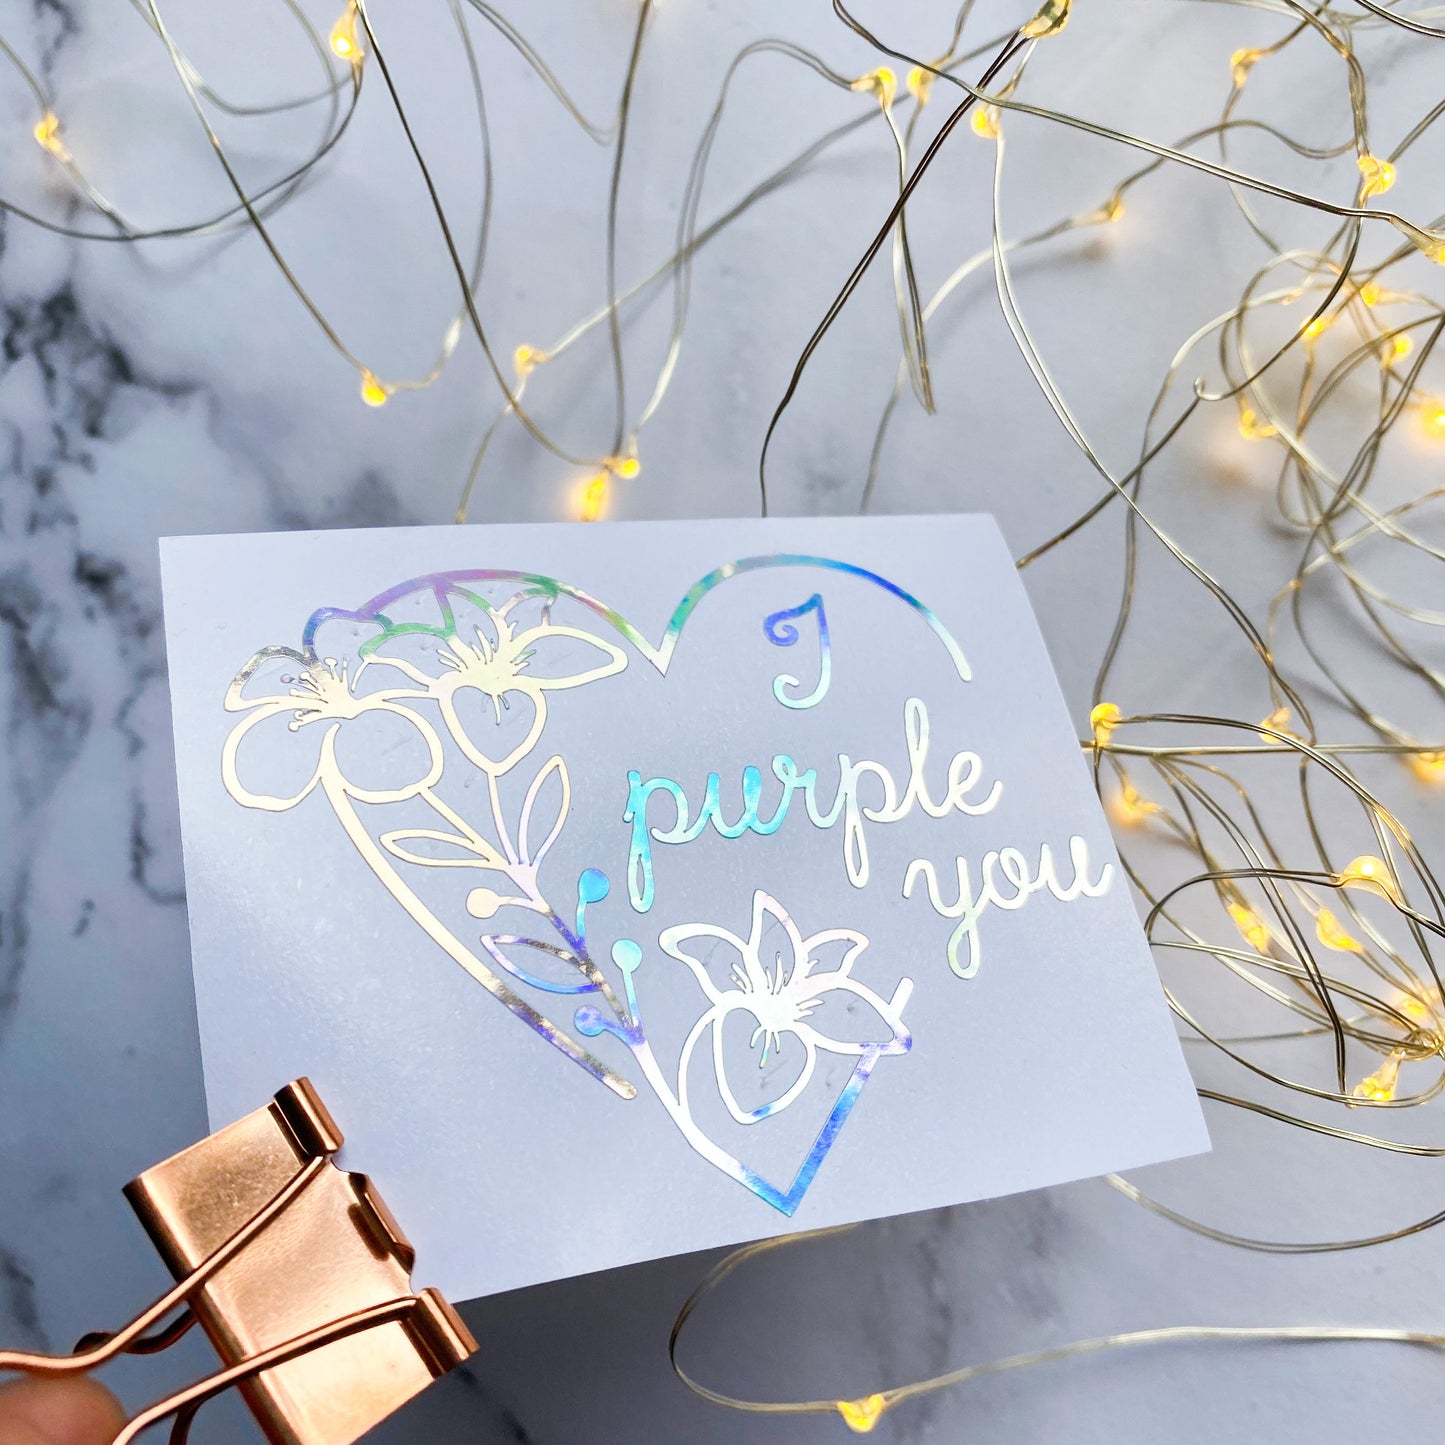 I
purple
you